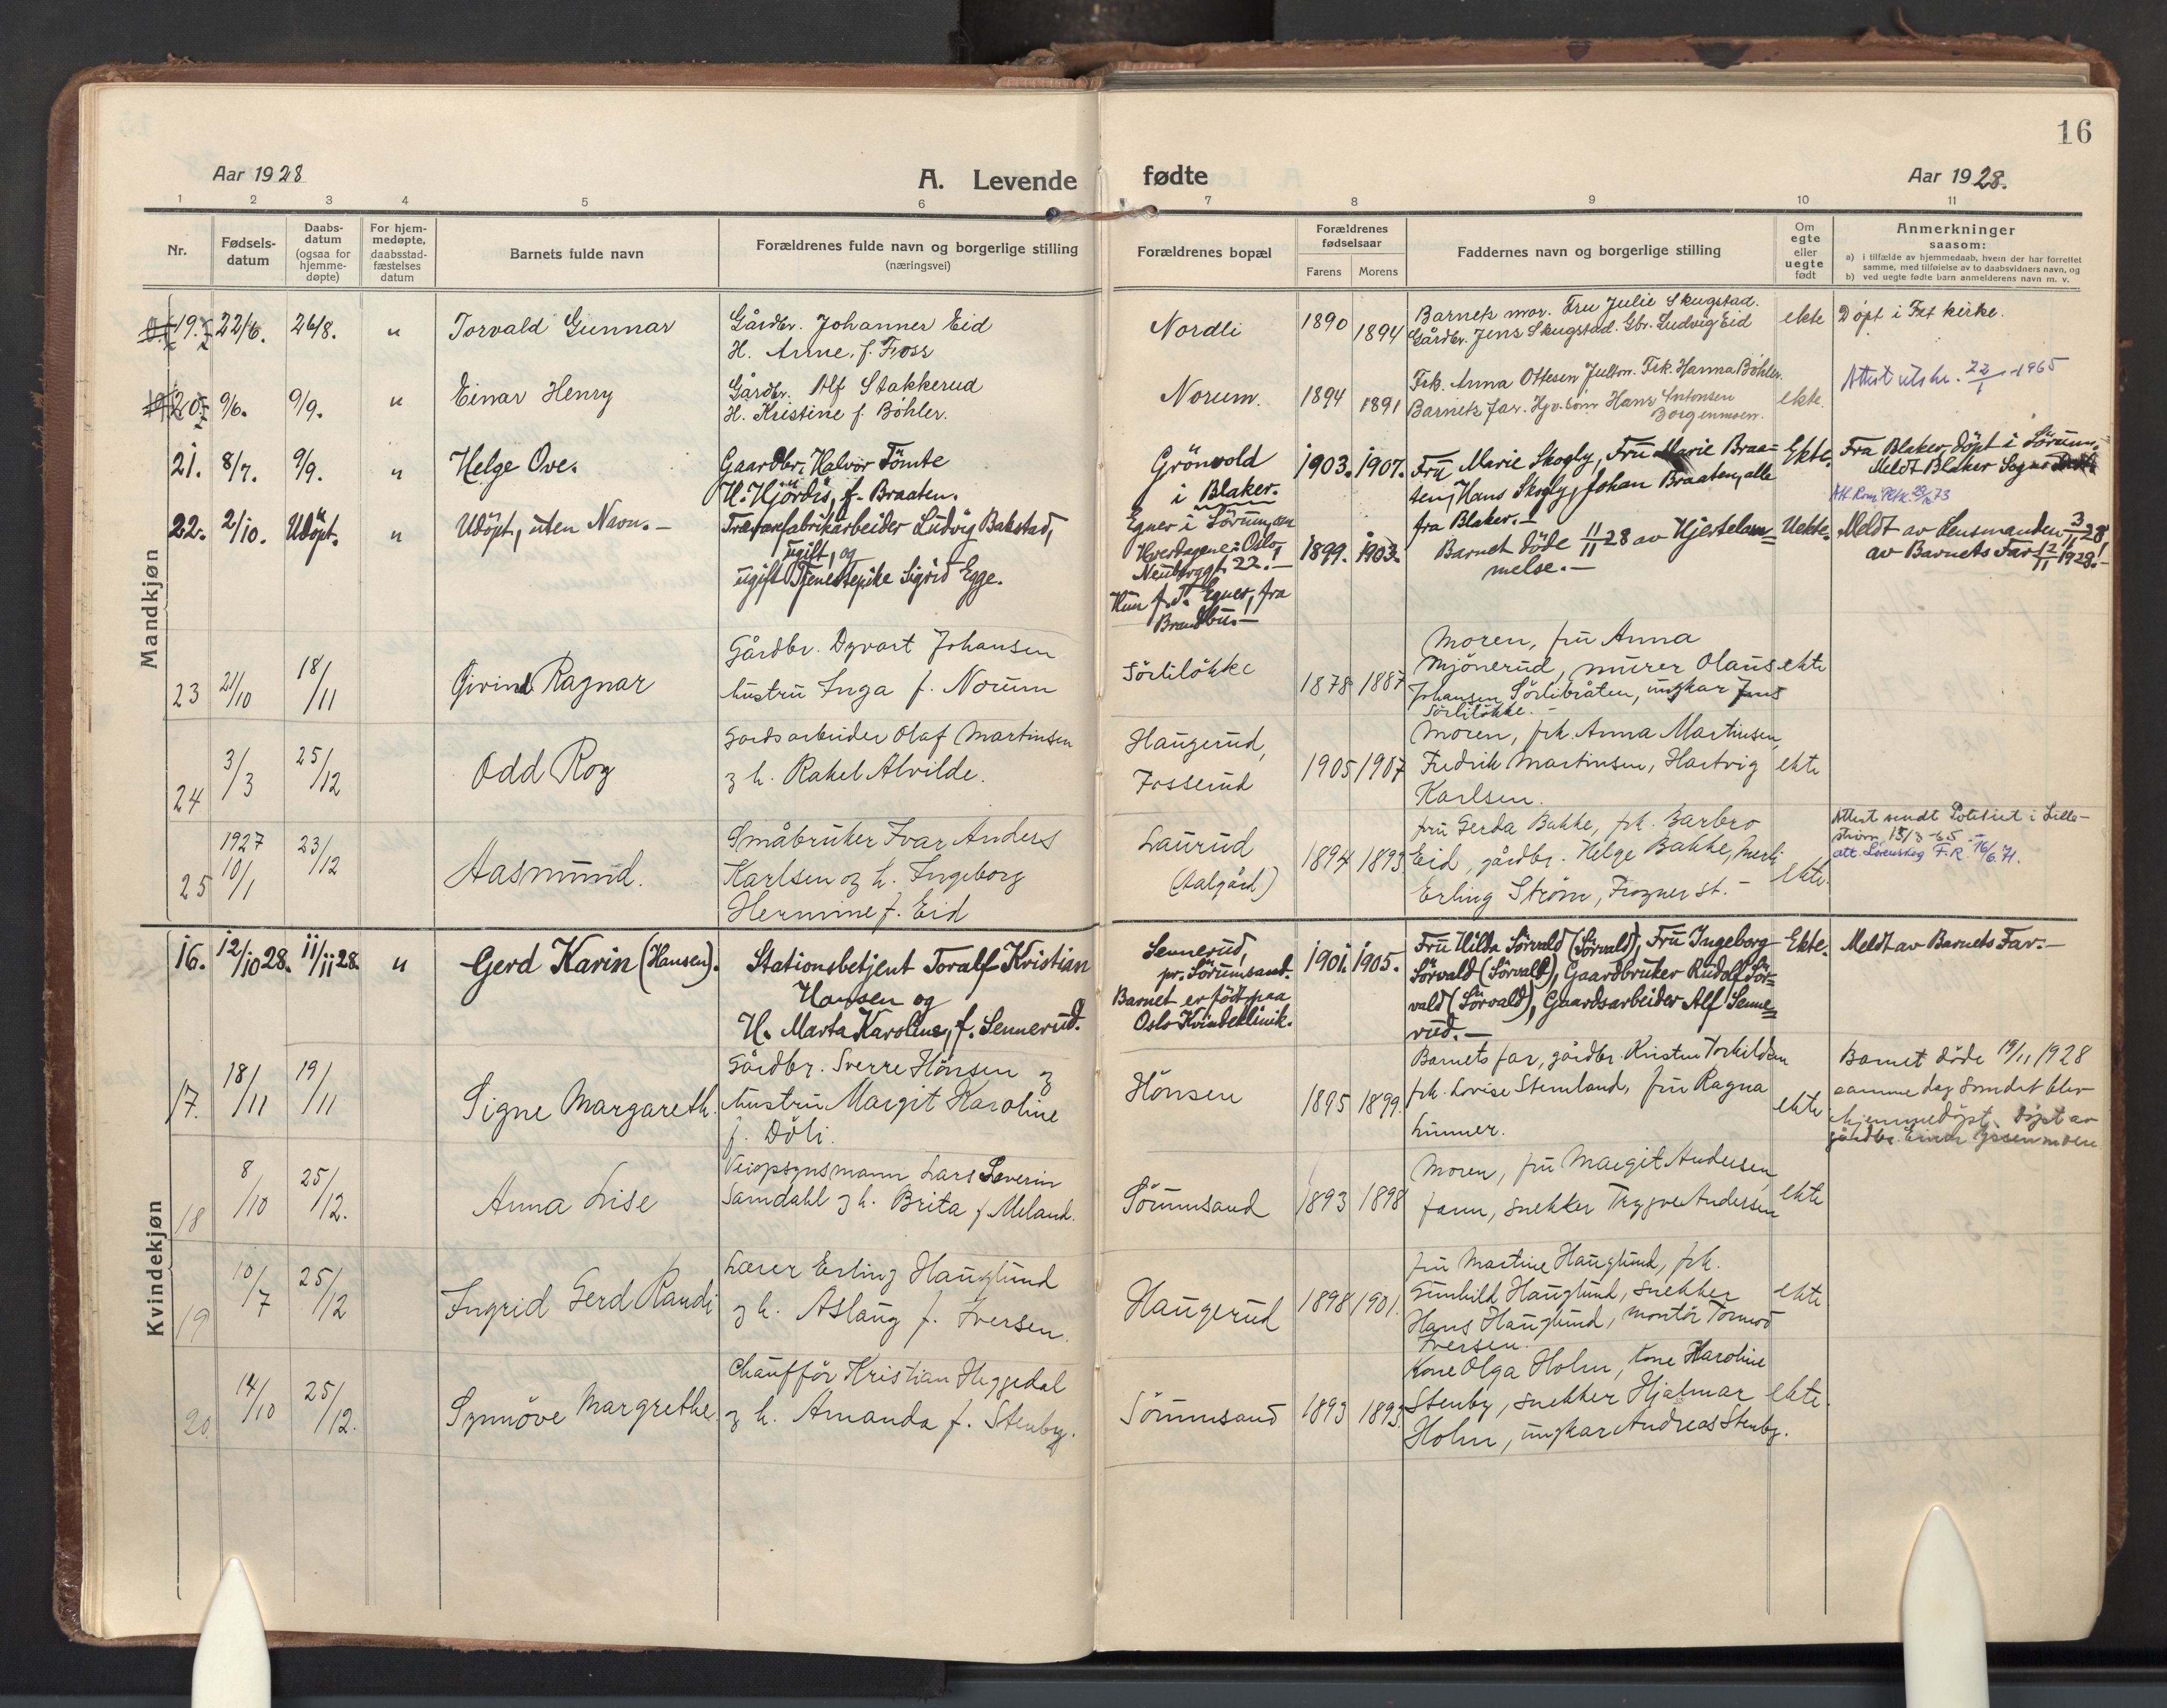 16
Aar 1928
A. Levende fødte
Aar 1928.
1 2 3 4 5 6 7 8 9 10 11
Nr.
Fødsels-
datum
Daabs-
datum
(ogsaa for
hjemme-
døpte)
For hjem-
medøpte,
daabsstad-
fæstelses
datum
Barnets fulde navn
Forældrenes fulde navn og borgerlige stilling
(næringsvei)
Forældrenes bopæl
Forældrenes
fødselsaar
Farens Morens
Faddernes navn og borgerlige stilling
Om
egte
eller
uegte
født
Anmerkninger
saasom:
a) i tilfælde av hjemmedaab, hvem der har forrettet
samme, med tilføielse av to daabsvidners navn, og
b) ved uegte fødte barn anmelderens navn m. v.
Mandkjøn
19. 22/6. 26/8. u Torvald Gunnar
Gårdbr. Johannes Eid
H. Anne, f. Foss
Nordli
1890 1894
Barnets mor. Fru Julie Skugstad.
Gårdbr. Jens Skugstad. Gbr. Ludvig Eid
ekte
Døpt i Fet kirke.
20. 9/6. 9/9. u Einar Henry
Gårdbr. Alf Stakkerud
H. Kristine f. Bøhler.
Norum.
1894 1891
Frk. Anna Ottesen Frk. Hanna Bøhler.
Barnets far. Hans Antonsen
Borgenmoen.
ekte.
Attest utskr. 22/1 - 1965
21. 8/7. 9/9. u Helge Ove.
Gaardbr. Halvor Tömte
H. Hjördis, f. Braaten.
Grönvold
i Blaker.
1903. 1907.
Frü Marie Skogly, Frü Marie Braa-
ten, Hans Skogly, Johan Braaten, alle
fra Blaker.-
Ekte.
Fra Blaker, döpt i Sörum.
Meldt Blaker Sogne
22. 2/10. Udöpt. u Udöpt, uten Navn.-
Trævarefabrikarbeider Ludvig Bakstad,
ugift, og
ugift Tjenestepike Sigrid Egge.
Egner i Sörum, en
Hverdagene i Oslo,
22.-
Hun f. T. Egner, fra
Brandbu.-
1899. 1903.
Barnet döde 11/11 28 av Hjertelam-
melse.-
Uekte.
Meldt av Lensmanden 3/11 28,
av Barnets Far 12/11 1928!-
23 21/10 18/11 Öivind Ragnar
Gårdbr. Dyvart Johansen
hustru Inga f. Norum
Sörliløkka
1878 1887
Moren, fru Anna
Mjönerud, murer Olaus
Johansen Sörlibråten, ungkar Jens
Sörliløkke.-
ekte
24 3/3 25/12 Odd Roy
Gårdsarbeider Olaf Martinsen
og h. Rakel Alvilde.
Haugerud,
Fosserud
1905 1907
Moren, frk. Anna Martinsen,
Fredrik Martinsen, Hartvig
Karlsen.
ekte
25 1927 10/1 23/12 Aasmund.
Småbruker Ivar Anders
Karlsen og h. Ingeborg
Hermine f. Eid
Laurud
(Aalgård)
1894 1893
fru Gerda Bakke, frk. Barbro
Eid, gårdbr. Helge Bakke,
Erling Strøm, Frogner st.-
ekte.
Attest sendt Politiet i Lille-
strøm 15/3 -65.-
att. Lörenskog F.R. 16/6.71.
Kvindekjøn
16. 12/10 28. 11/11 28. u Gerd Karin (Hansen).
Stationsbetjent Toralf Kristian
Hansen og
H. Marta Karoline, f. Sennerud.
Sennerud,
pr. Sörumsand.
Barnet er födt paa
Oslo Kvindeklinik.
1901. 1905.
Frü Hilda Sörvald (Sörvald), Frü Ingeborg
Sörvald (Sörvald), Gaardbruker Rudolf Sör-
vald (Sörvald), Gaardsarbeider Alf Senne-
rud.-
Ekte.
Meldt av Barnets Far.-
17. 18/11 19/11 Signe Margareth.
Gårdbr. Sverre Hönsen og
hustru Margit Karoline
f. Döli.
Hönsen
1895 1899.
Barnets far, gårdbr. Kristen Torkildsen
frk. Lovise Stemland, fru Ragna
Linner.
ekte
Barnet döde 19/11 1928
samme dag som det blev
hjemmedöpt. Döpt av
gårdbr. Einar
18 8/10 25/12. Anna Lise
Veiopsynsmann Lars Severin
Samdahl og h. Brita f. Meland.
Sörumsand
1893 1898
Moren, fru Margit Andersen,
faren, snekker Trygve Andersen
ekte
19 10/7 25/12 Ingrid Gerd Randi
Lærer Erling Hauglund
og h. Aslaug f. Iversen.
Haugerud
1898 1901.
fru Martine Hauglund, frk.
Gunhild Hauglund, snekker
Hans Hauglund, montör Tormod
Iversen.
ekte
20. 14/10 25/12. Synnöve Margrethe.
Chaufför Kristian Heggedal
og h. Amanda f. Stenby.
Sörumsand
1893 1893.
Kone Olga Holm, Kone Karoline
Stenby, snekker Hjalmar
Holm, ungkar Andreas Stenby.
ekte.